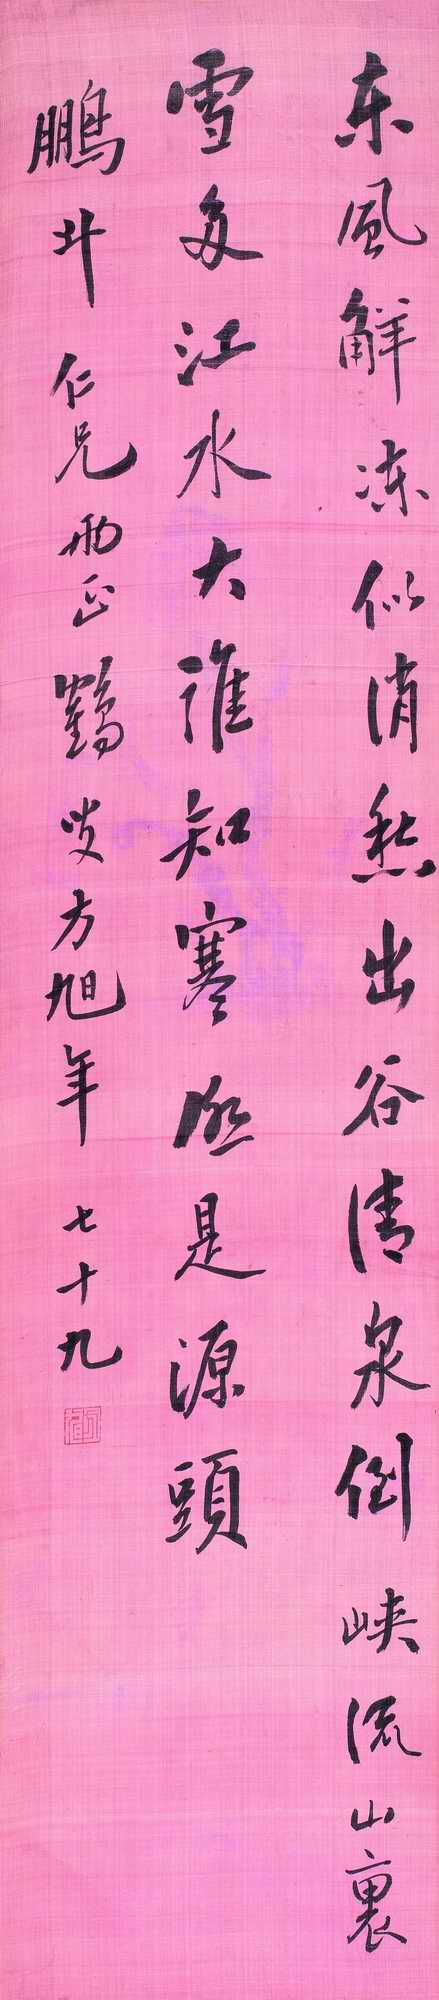 东風解凍似消愁出谷清泉倒峡流山裏
雪多江水大誰知寒處是源頭
鵬斗仁兄雨正鶴叟方旭年七十九